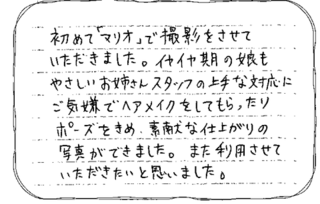 初めて「マリオ」で撮影をさせて
いただきました。イヤイヤ期の娘も
やさしいお姉さんスタッフの上手な対応に
ご気嫌でヘアメイクをしてもらったり
ポーズをきめ、素敵な仕上がりの
写真ができました。また利用させて
いただきたいと思いました。